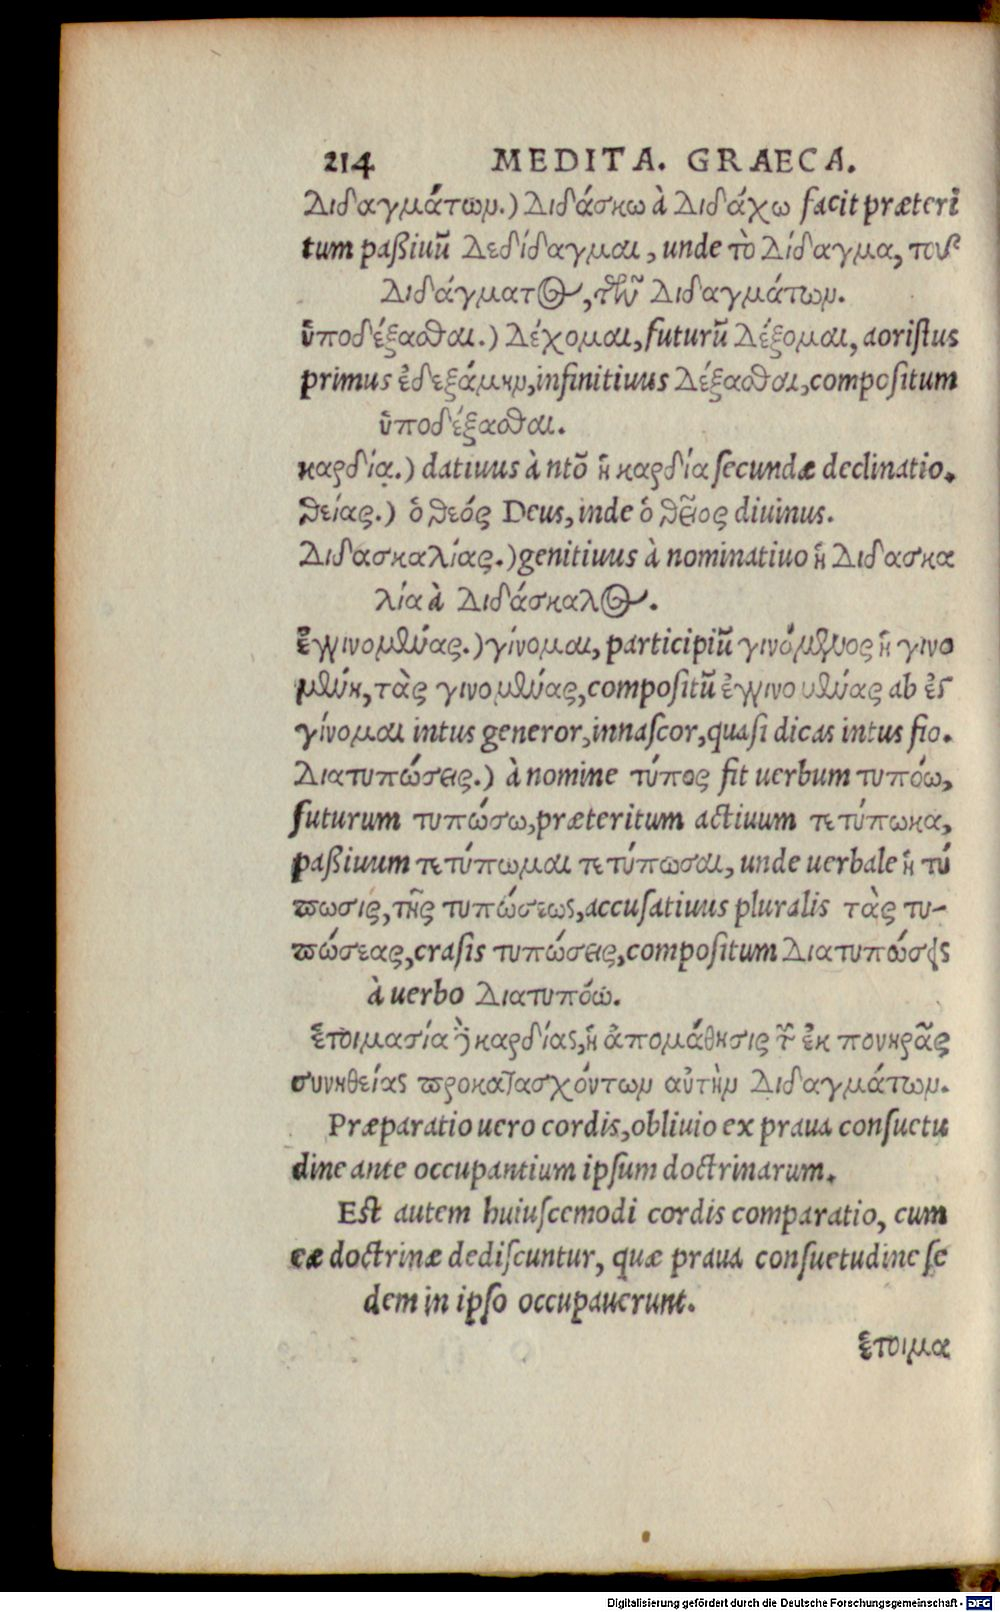 214 MEDITA. GRAECA.
διδαγμάτων.) διδάσκω à διδάχω facit præteri
tum paßiuũ δεδίδαγμαι, unde τὸ δίδαγμα, τοῦ
διδάγματος, τῶν διδαγμάτων.
ὑποδέξασθαι.) δέχομαι, futurũ δέξομαι, aoristus
primus ἐδεξάμην, infinitiuus δέξασθαι, compositum
ὑποδέξασθαι.
καρδίᾳ.) datiuus à ntõ ἡ καρδία secundæ declinatio.
θείας.) ὁ θεός Deus, inde ὁ θεῖος diuinus.
διδασκαλίας.) genitiuus à nominatiuo ἡ διδασκα
λία à διδάσκαλος.
ἐγγινομένας.) γίνομαι, participiũ γινόμενος ἡ γινο
μένη, τὰς γινομένας, compositũ ἐγγινομένας ab ἐγ
γίνομαι intus generor, innascor, quasi dicas intus fio.
διατυπώσεις.) à nomine τύπος fit uerbum τυπόω,
futurum τυπώσω, præteritum actiuum τετύπωκα,
paßiuum τετύπωμαι τετύπωσαι, unde uerbale ἡ τύ
πωσις, τῆς τυπώσεως, accusatiuus pluralis τὰς τυ-
πώσεας, crasis τυπώσεις, compositum διατυπώσεις
à uerbo διατυπόω.
ἑτοιμασία δὲ καρδίας, ἡ ἀπομάθησις τῶν ἐκ πονηρᾶς
συνηθείας προκατασχόντων αὐτὴν διδαγμάτων.
Præparatio uero cordis, obliuio ex praua consuetu
dine ante occupantium ipsum doctrinarum.
Est autem huiuscemodi cordis comparatio, cum
eæ doctrinæ dediscuntur, quæ praua consuetudine se
dem in ipso occupauerunt.
ἑτοιμα
Digitalisierung gefördert durch die Deutsche Forschungsgemeinschaft - DFG